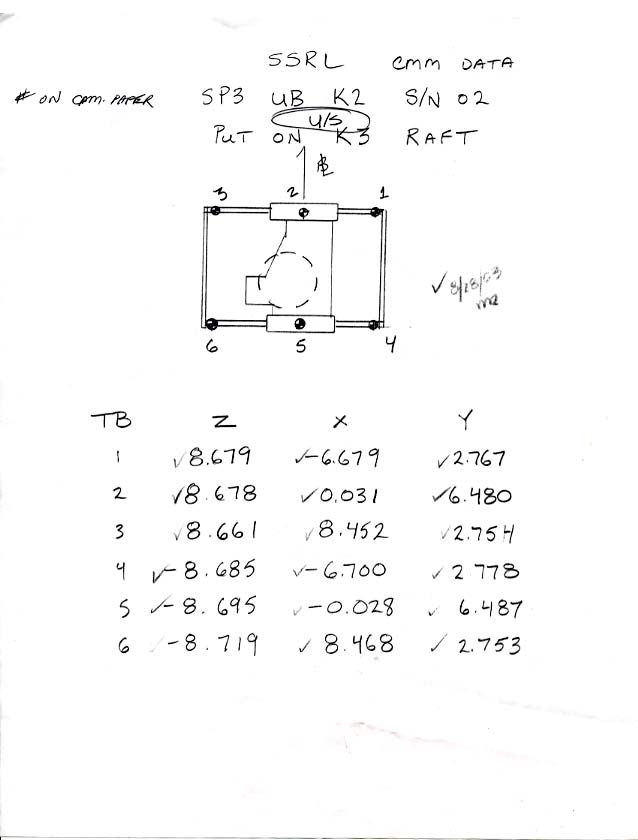 SSRL CMM DATA
# ON CMM. PAPER SP3 UB K2 S/N 02
U/S
PUT ON K3 RAFT
BL
3 2 1
✓ 8/28/03
MR
6 5 4
TB Z X Y
1 ✓8.679 ✓-6.679 ✓2.767
2 ✓8.678 ✓0.031 ✓6.480
3 ✓8.661 ✓8.452 ✓2.754
4 ✓-8.685 ✓-6.700 ✓2.778
5 ✓-8.695 ✓-0.028 ✓6.487
6 ✓-8.719 ✓8.468 ✓2.753